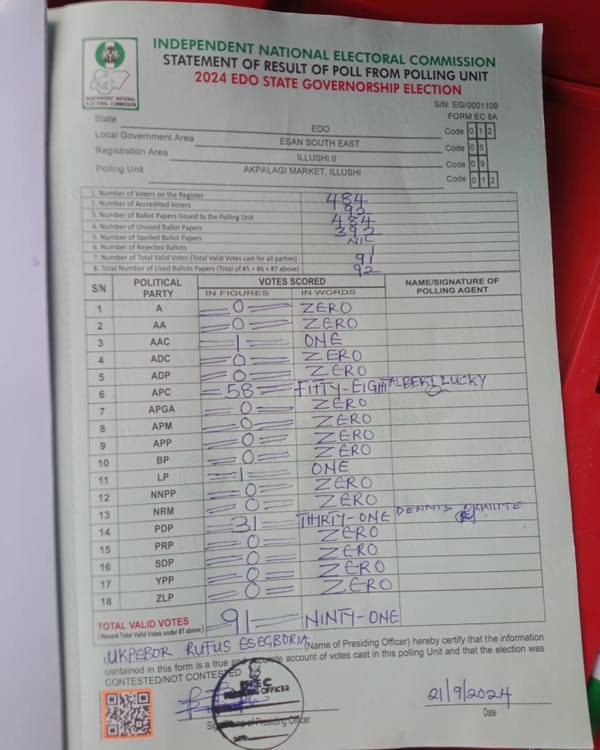 INDEPENDENT NATIONAL ELECTORAL COMMISSION
STATEMENT OF RESULT OF POLL FROM POLLING UNIT
2024 EDO STATE GOVERNORSHIP ELECTION
INEC
INDEPENDENT NATIONAL ELECTORAL COMMISSION
S/N: EG/0001109
FORM EC 8A
State EDO Code 0 1 2
Local Government Area ESAN SOUTH EAST Code 0 5
Registration Area ILLUSHI II Code 0 9
Polling Unit AKPALAGI MARKET, ILLUSHI Code 0 1 2
1. Number of Voters on the Register 484
2. Number of Accredited Voters 92
3. Number of Ballot Papers Issued to the Polling Unit 484
4. Number of Unused Ballot Papers 392
5. Number of Spoiled Ballot Papers NIL
6. Number of Rejected Ballots 1
7. Number of Total Valid Votes (Total Valid Votes cast for all parties) 91
8. Total Number of Used Ballots Papers (Total of #5 + #6 + #7 above) 92
S/N POLITICAL PARTY VOTES SCORED NAME/SIGNATURE OF POLLING AGENT
IN FIGURES IN WORDS
1 A 0 ZERO
2 AA 0 ZERO
3 AAC 1 ONE
4 ADC 0 ZERO
5 ADP 0 ZERO
6 APC 58 FITTY-EIGHT ALBERT LUCKY
7 APGA 0 ZERO
8 APM 0 ZERO
9 APP 0 ZERO
10 BP 0 ZERO
11 LP 1 ONE
12 NNPP 0 ZERO
13 NRM 0 ZERO
14 PDP 31 THIRTY-ONE DENNIS
15 PRP 0 ZERO
16 SDP 0 ZERO
17 YPP 0 ZERO
18 ZLP 0 ZERO
TOTAL VALID VOTES 91 NINTY-ONE
(Record Total Valid Votes under #7 above)
I UKPEBOR RUFUS ESEGBORIA (Name of Presiding Officer) hereby certify that the information
contained in this form is a true and accurate account of votes cast in this polling Unit and that the election was
CONTESTED/NOT CONTESTED
INEC
PRESIDING OFFICER
21/9/2024
Signature of Presiding Officer Date